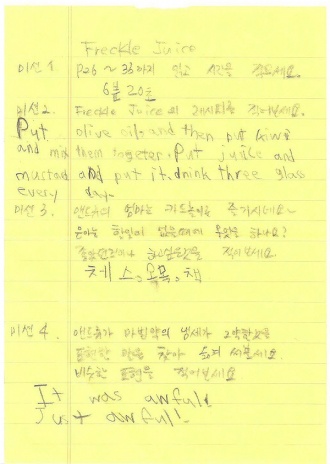 Freckle Juice
미션 1. p26 ~ 36까지 읽고 시간을 적으세요.
6분 20초
미션 2. Freckle Juice의 레시피를 적어보세요.
Put olive oil, and then put kiwi
and mix them togeter. Put juike and
mustard and put it. drink three glass
every day.
미션 3. 앤드류의 엄마는 카드놀이를 즐기시네요~
윤아는 할일이 없을때에 무엇을 하나요?
적어보세요
체스, 오목, 책
미션 4. 앤드류가 마법약의 냄새가
표현한 말을 찾아 써보세요.
비슷한 표현을 적어보세요
It was awful!
Just awful!